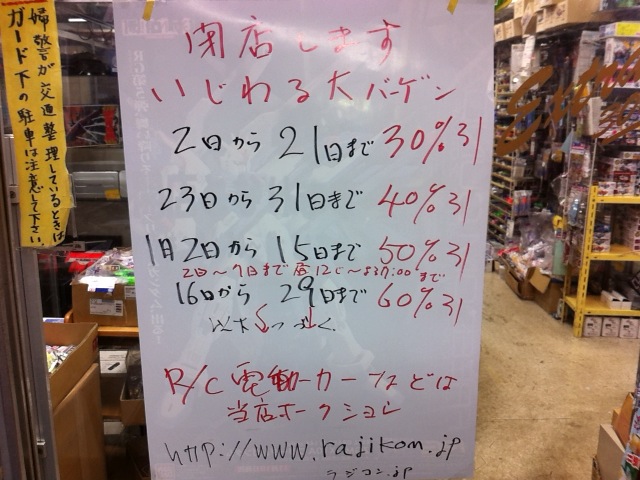 婦警が交通整理しているときは
ガード下の駐車は注意して下さい。
閉店します
いじわる大バーゲン
2日から21日まで30%引
23日から31日まで40%引
1月2日から15日まで50%引
2日〜7日まで昼12じ〜夕7:00まで
16日から29日まで60%引
以大
つづく
R/C電動カーなどは
当店オークション
http://www.rajikon.jp
ラジコン.jp